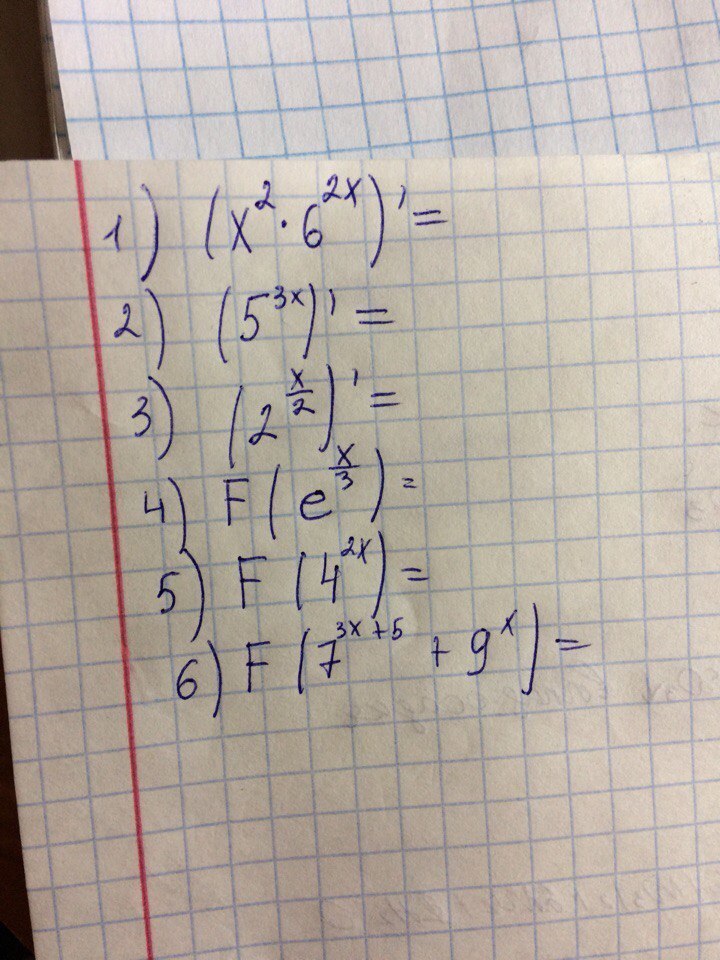 1) (x^2 · 6^{2x})' =
2) (5^{3x})' =
3) (2^{x/2})' =
4) F(e^{x/3}) =
5) F(4^{2x}) =
6) F(7^{3x+5} + 9^x) =